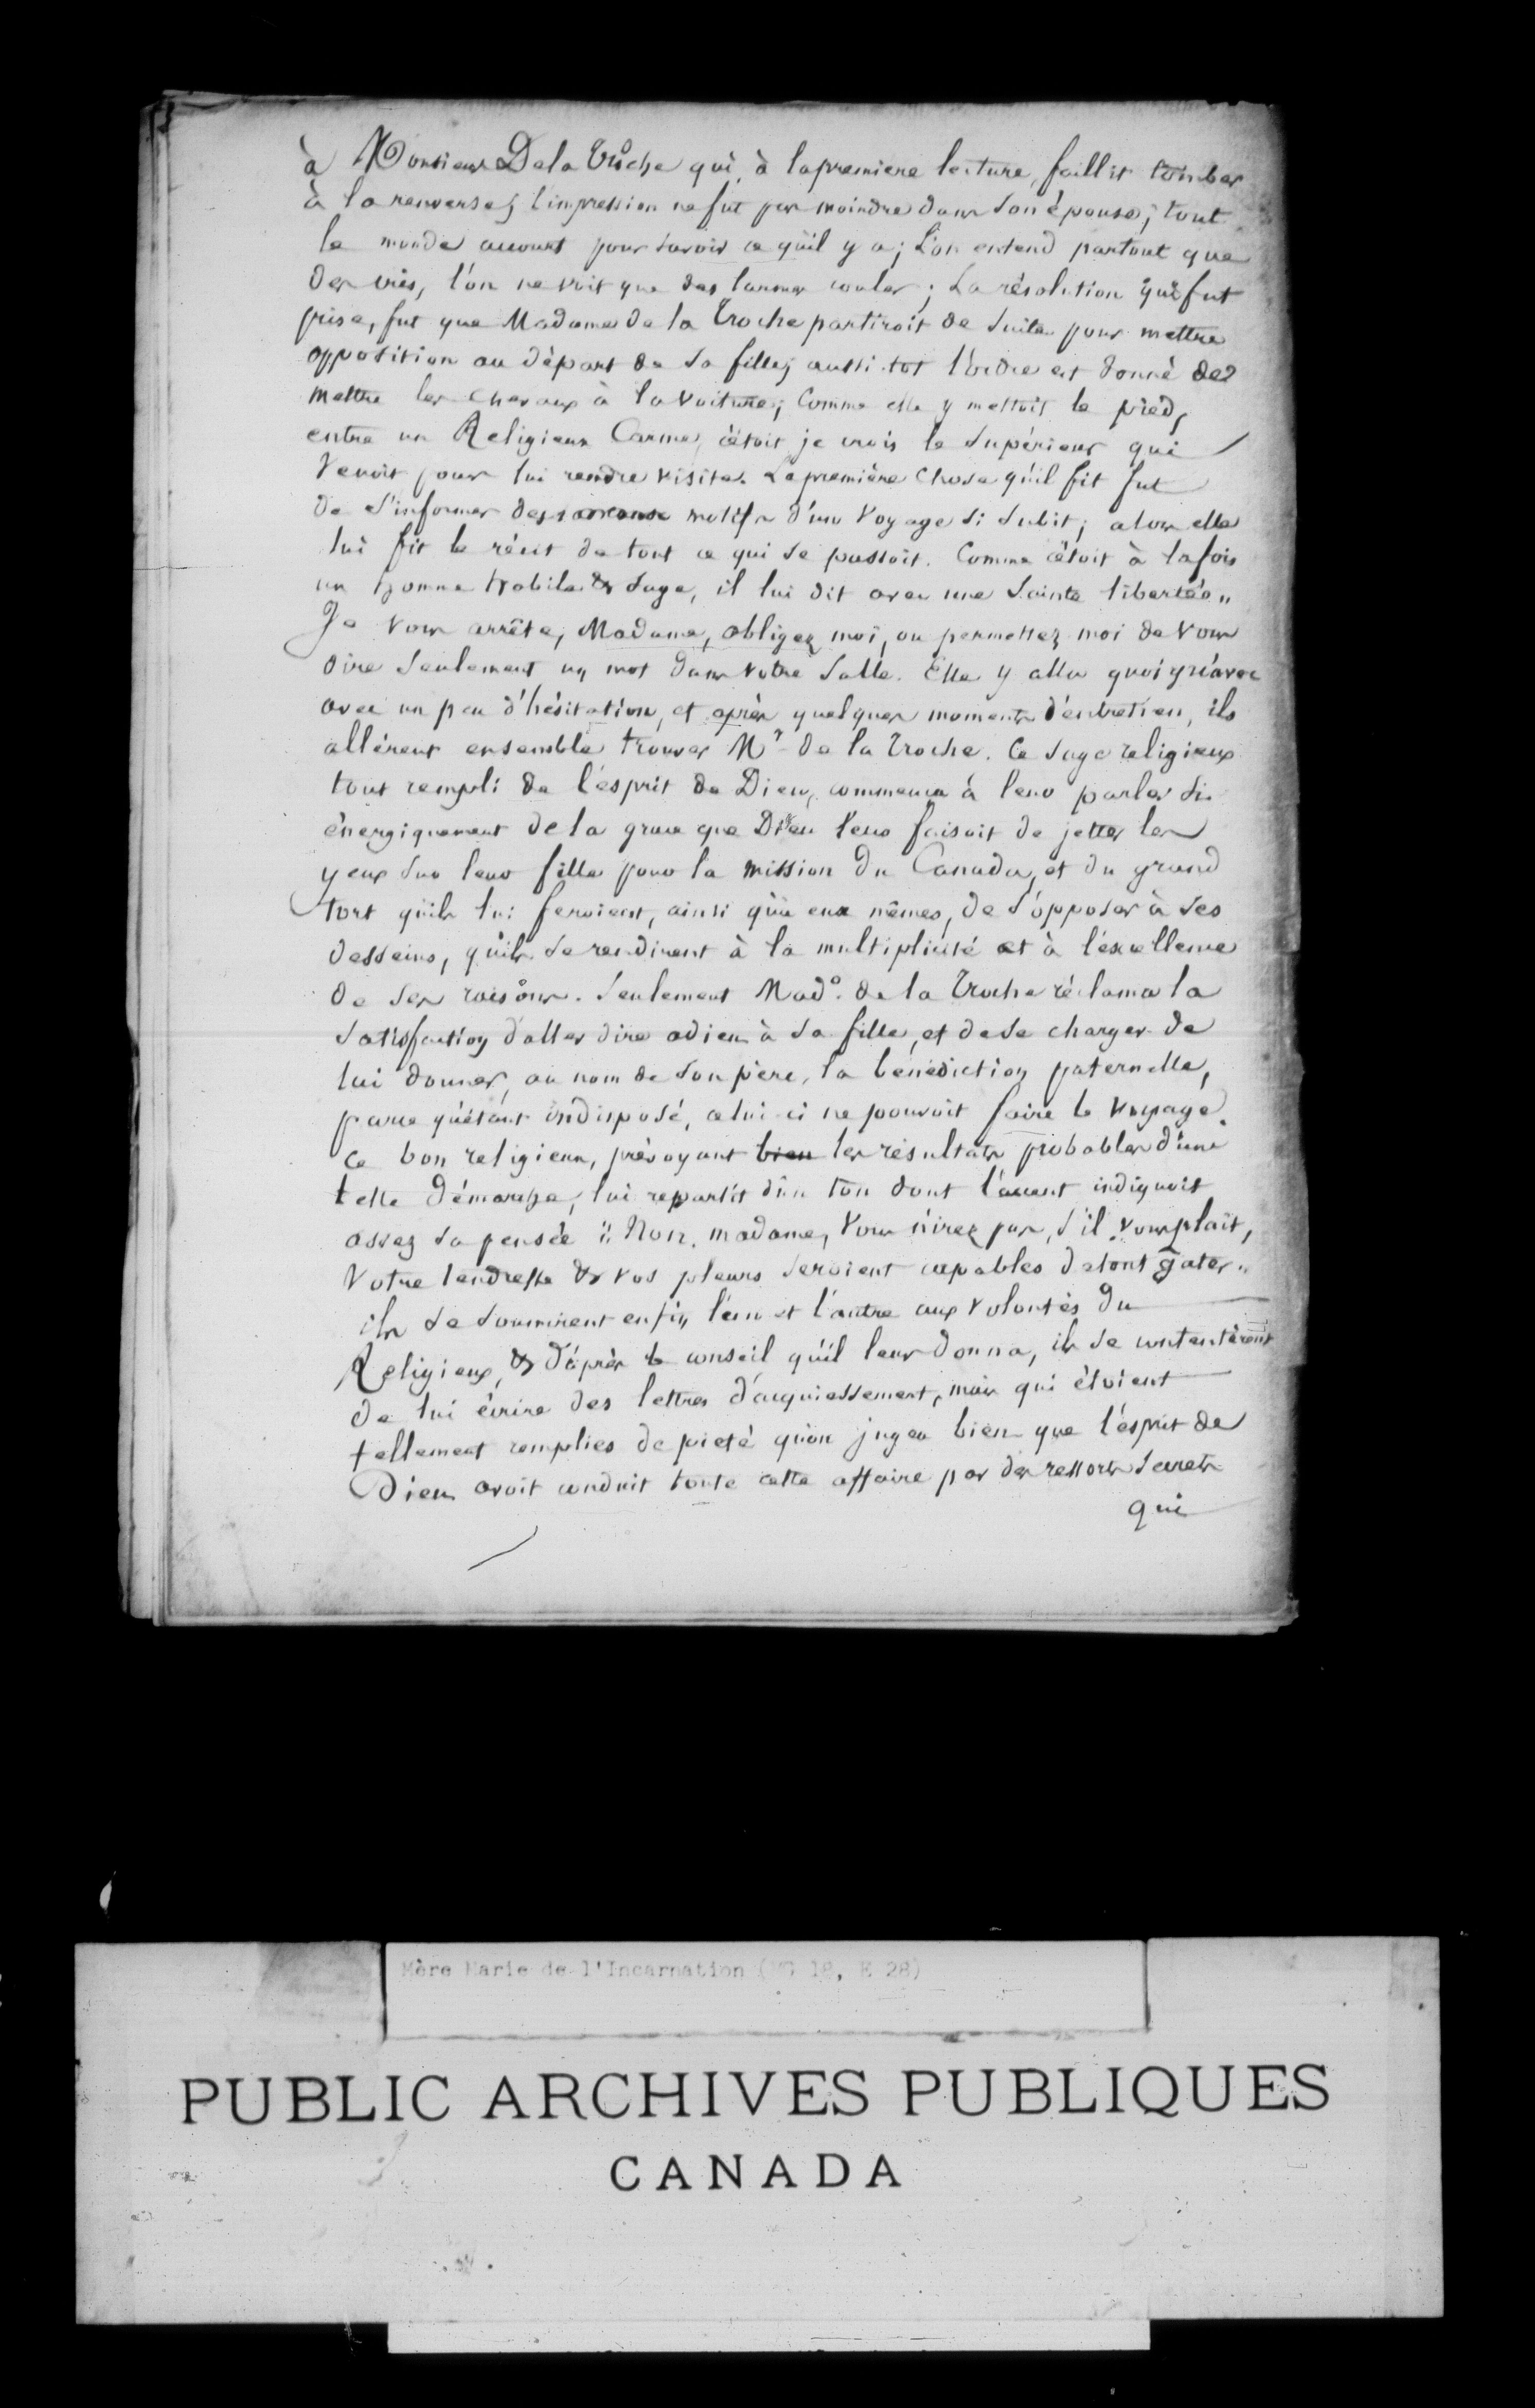 à Monsieur De la Troche qui, à la premiere lecture, faillit tomber
à la renverse; l'impression ne fut pas moindre dans son épouse; tout
le monde accourt pour savoir ce qu'il y a; L'on entend partout que
des cris, l'on ne voit que des larmes couler; La résolution qui fut
prise, fut que Madame de la Troche partiroit de suite pour mettre
opposition au départ de sa fille; aussi-tot l'ordre est donné de
mettre les chevaux à la voiture; Comme elle y mettoit le pied,
entre un Religieux Carme, c'étoit je crois le Supérieur qui
venoit pour lui rendre visite. La première chose qu'il fit fut
de s'informer des motifs d'un voyage si subit; alors elle
lui fit le récit de tout ce qui se passoit. Comme c'étoit à la fois
un homme habile & sage, il lui dit avec une sainte liberté „
Je vous arrête, Madame, obligez moi, ou permettez moi de vous
dire seulement un mot dans votre salle. Elle y alla quoiqu'avec
avec un peu d'hésitation, et après quelques moments d'entretien, ils
allérent ensemble trouver Mr de la Troche. Ce sage religieux
tout rempli de l'esprit de Dieu, commença à leur parler si
énergiquement de la grace que Dieu leur faisoit de jetter les
yeux sur leur fille pour la mission du Canada, et du grand
tort qu'ils lui feroient, ainsi qu'à eux mêmes, de s'opposer à ses
desseins, qu'ils se rendirent à la multiplicité et à l'excellence
de ses raisons. Seulement Made. de la Troche réclama la
satisfaction d'aller dire adieu à sa fille, et de se charger de
lui donner, au nom de son père, la bénédiction paternelle,
parce qu'étant indisposé, celui-ci ne pouvoit faire le voyage.
Ce bon religieux, prévoyant bien les résultats probables d'une
telle démarche, lui repartit d'un ton dont l'accent indiquoit
assez sa pensée „ Non, madame, vous n'irez pas, s'il vous plaît,
Votre tendresse & vos pleurs seroient capables de tout gater „
ils se soumirent enfin l'un et l'autre aux volontés du
Religieux, & d'après le conseil qu'il leur donna, ils se contentèrent
de lui écrire des lettres d'acquiessement, mais qui étoient
tellement remplies de pieté qu'on jugea bien que l'ésprit de
Dieu avoit conduit toute cette affaire par des ressorts secrets
qui
Mère Marie de l'Incarnation (MG 18, E 28)
PUBLIC ARCHIVES PUBLIQUES
CANADA